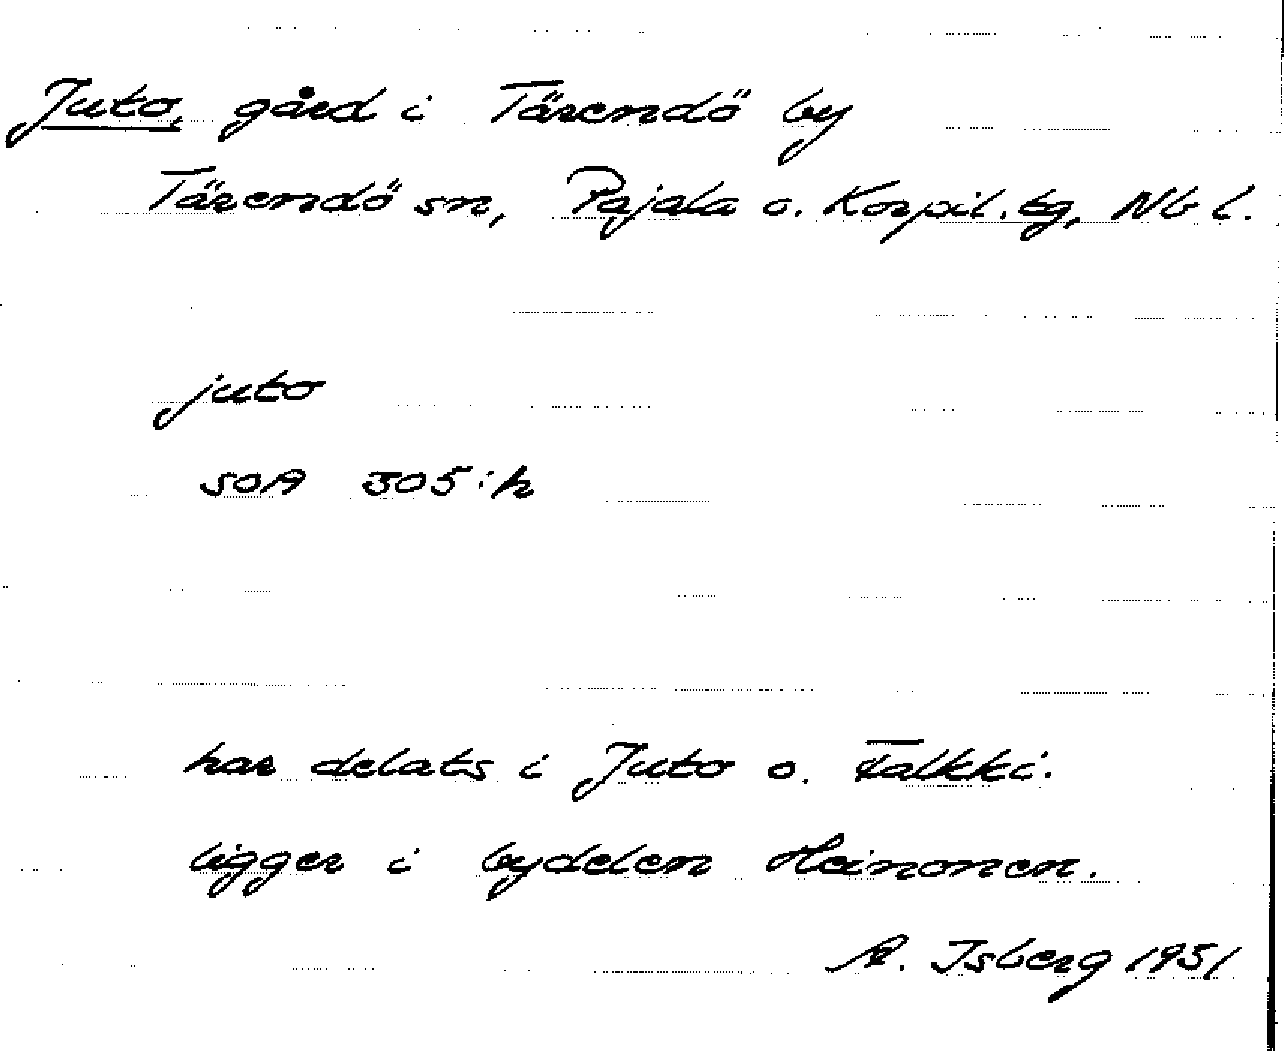 Juto, gård i Tärendö by
Tärendö sn, Pajala o. Korpil. tg, Nb l.
juto
SOA 305:h
har delats i Juto o. Falkki.
ligger i bydelen Heinonen.
R. Isberg 1951